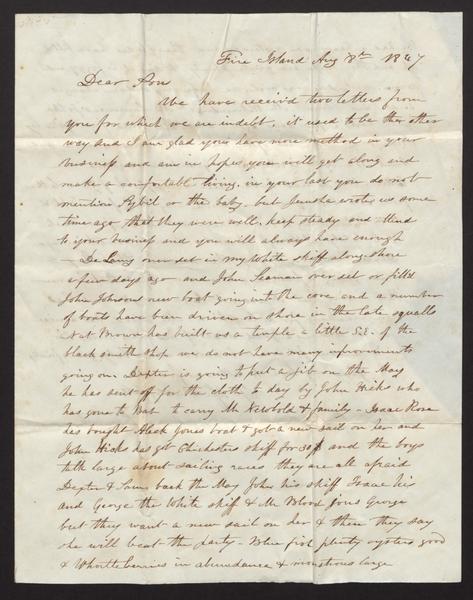 Fire Island Aug 8th 1847
Dear Son
We have receivd two letters from
you for which we are indebt, it used to be the other
way and I am glad you have more method in your
business and am in hopes you will get along and
make a comfortable living, in your last you do not
mention Sybil or the baby, but wrote us some
time ago that they were well, keep steady and
to your business and you will always have enough
over set in my White skiff along shore
a few days ago and John Seaman over set or filld
John Johnsons new boat going into the cove and a number
of boats have been driven on shore in the late squalls
Nat Brown has built us a temple a little S.E. of the
black smith shop we do not have many improvments
going on. Dexter is going to put a jib on the May
he has sent off for the cloth to day by John Hicks who
has gone to to carry Mr Newbold & family - Isaac Rose
has bought Aleck Jones boat & got a new sail on her and
John Hicks has got Chichesters skiff for 30$ and the boys
talk large about sailing races they are all afraid
Dexter & back the May John his skiff Isaac his
and George the White skiff & Mr Blood joins George
but they want a new sail on her & then they say
she will beat the party - Blue fish plenty oysters good
& Whortleberries in abundance & monstrous large